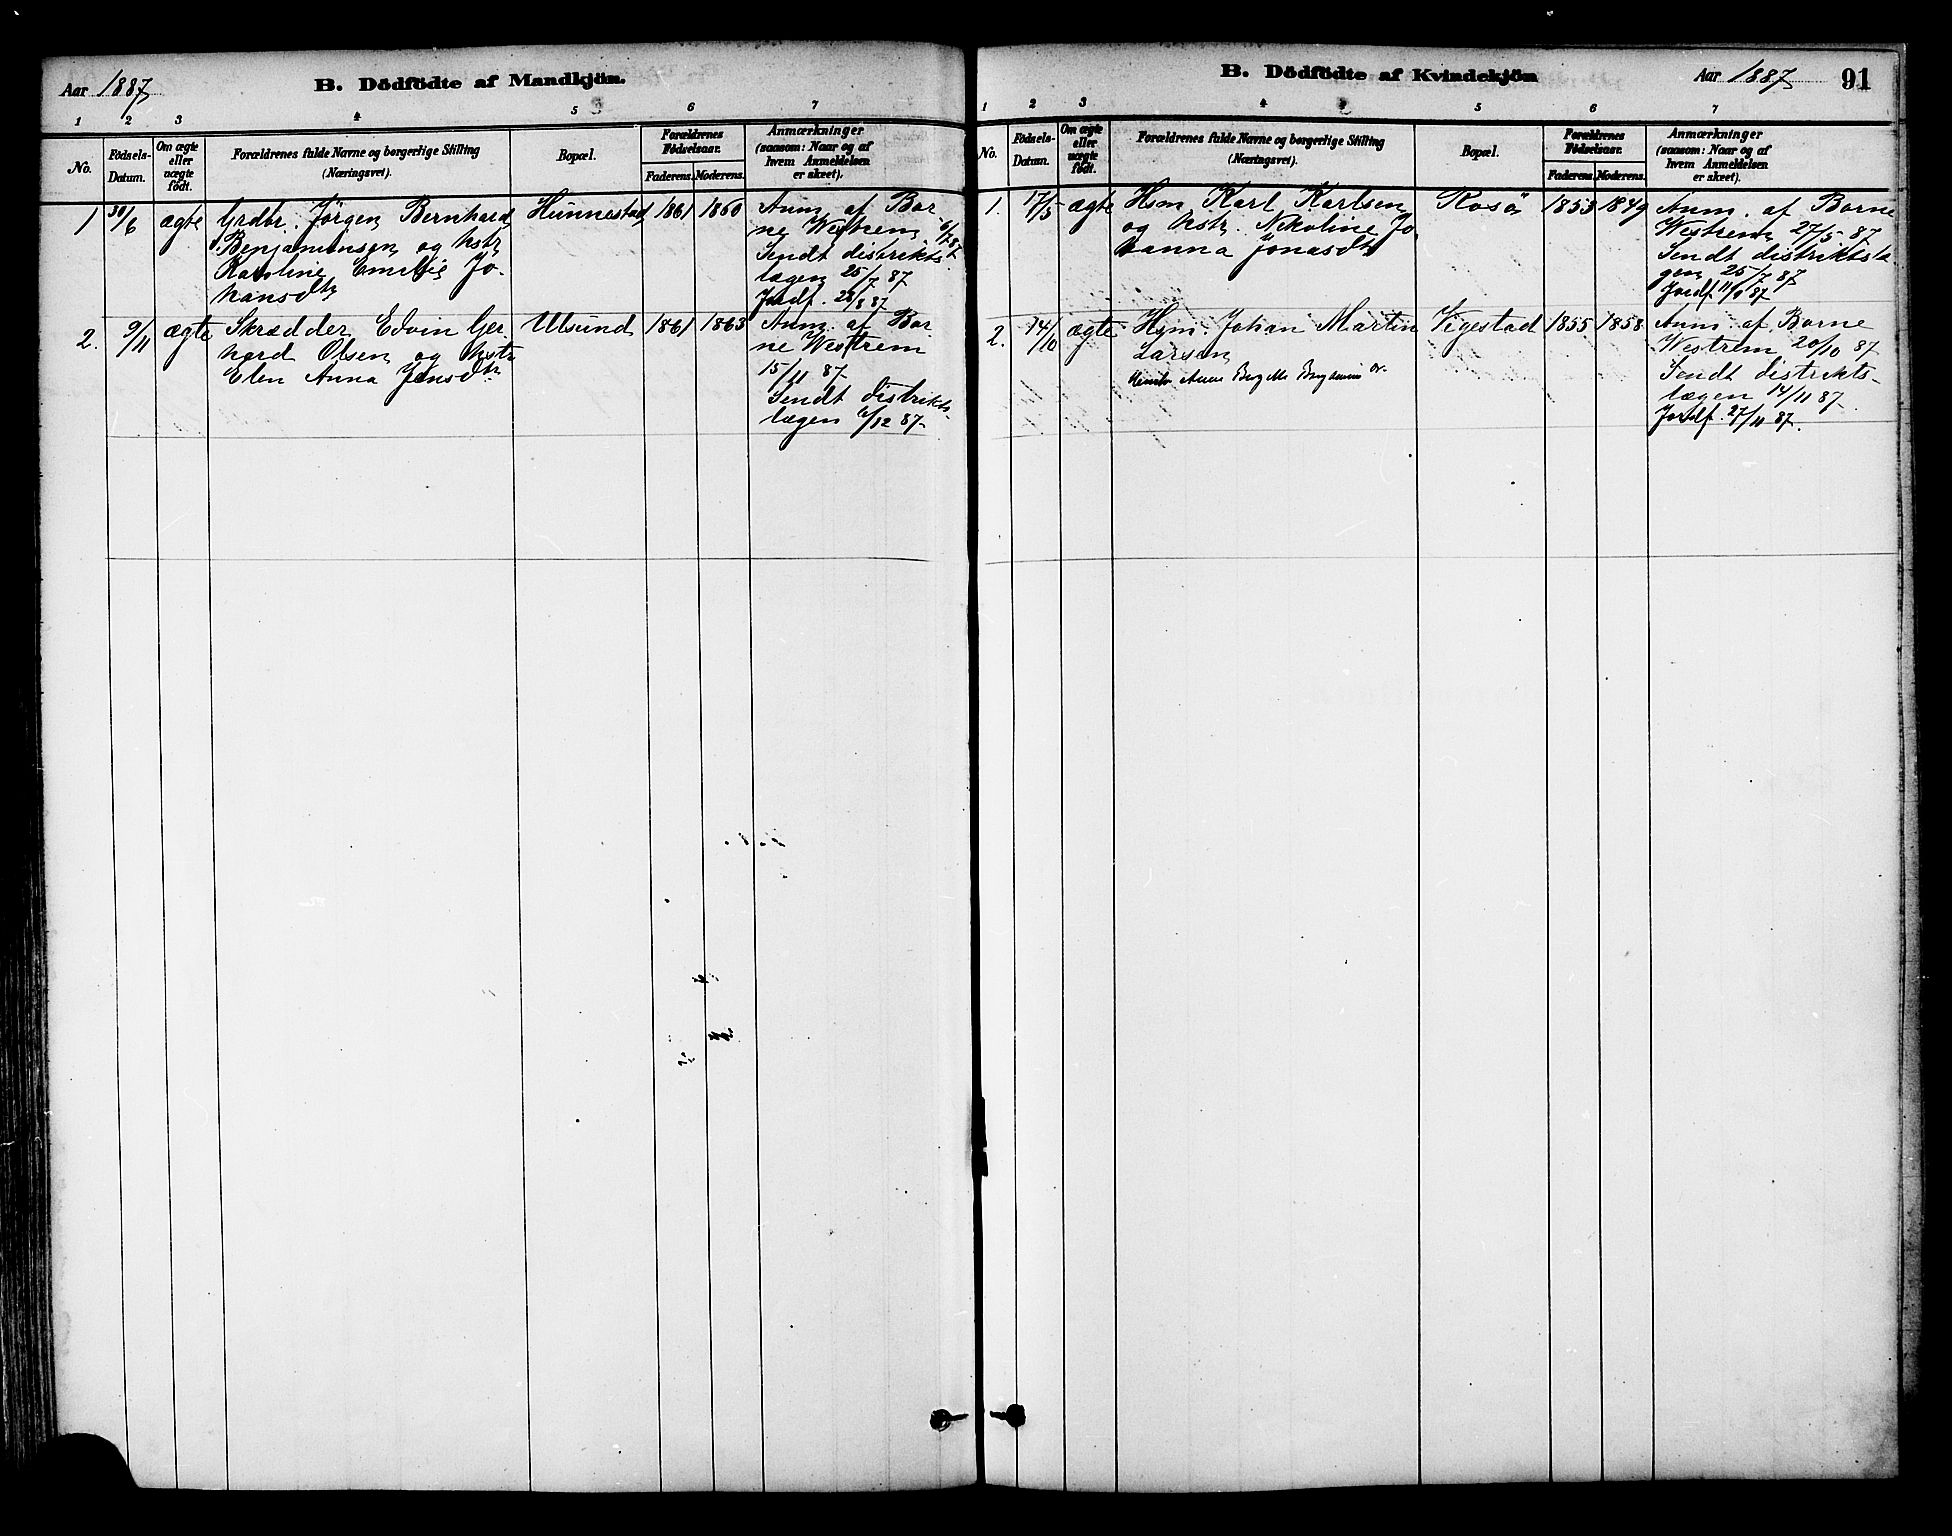 Aar 1887
B. Dödfödte af Mandkjön.
1 2 3 4 5 6 7
No.
Födsels-Datum.
Om ægte eller uægte födt.
Forældrenes fulde Navne og borgerlige Stilling (Næringsvei).
Bopæl.
Forældrenes Födselsaar.
Faderens. Moderens.
Anmærkninger (saasom: Naar og af hvem Anmeldelsen er skeet).
1 30/6 ægte Grdbr. Jörgen Bernhard Hunnestad 1861 1860 Anm. af Bor
Benjaminsen og hstr ne Westrem 6/7 87
Karoline Emilie Jo- Sendt distrikts
hansdtr lægen 25/7 87
Jordf. 28/8 87
2. 9/11 ægte Skrædder Edvin Ger Ulsund 1861 1863 Anm. af Bor
hard Olsen og hstr ne Westrem
Elen Anna Jensdtr 15/11 87
Sendt distrikts
lægen 6/12 87
B. Dödfödte af Kvindekjön
Aar 1887
91
1 2 3 4 5 6 7
No.
Födsels-Datum.
Om ægte eller uægte födt.
Forældrenes fulde Navne og borgerlige Stilling (Næringsvei).
Bopæl.
Forældrenes Födselsaar.
Faderens. Moderens.
Anmærkninger (saasom: Naar og af hvem Anmeldelsen er skeet).
1. 17/5 ægte Hsm Karl Karlsen Rosö 1853 1849 Anm. af Borne
og hstr. Nikoline Jo Westrem 27/5 87
hanna Jonasdtr Sendt distriktslæ
gen 25/7 87
Jordf. 11/9 87
2. 14/10 ægte Hsm. Johan Martin Vigestad 1855 1858 Anm. af Borne
Larsen Westrem 20/10 87
Anne Sendt distrikts-
lægen 14/11 87.
Jordf. 27/11 87.